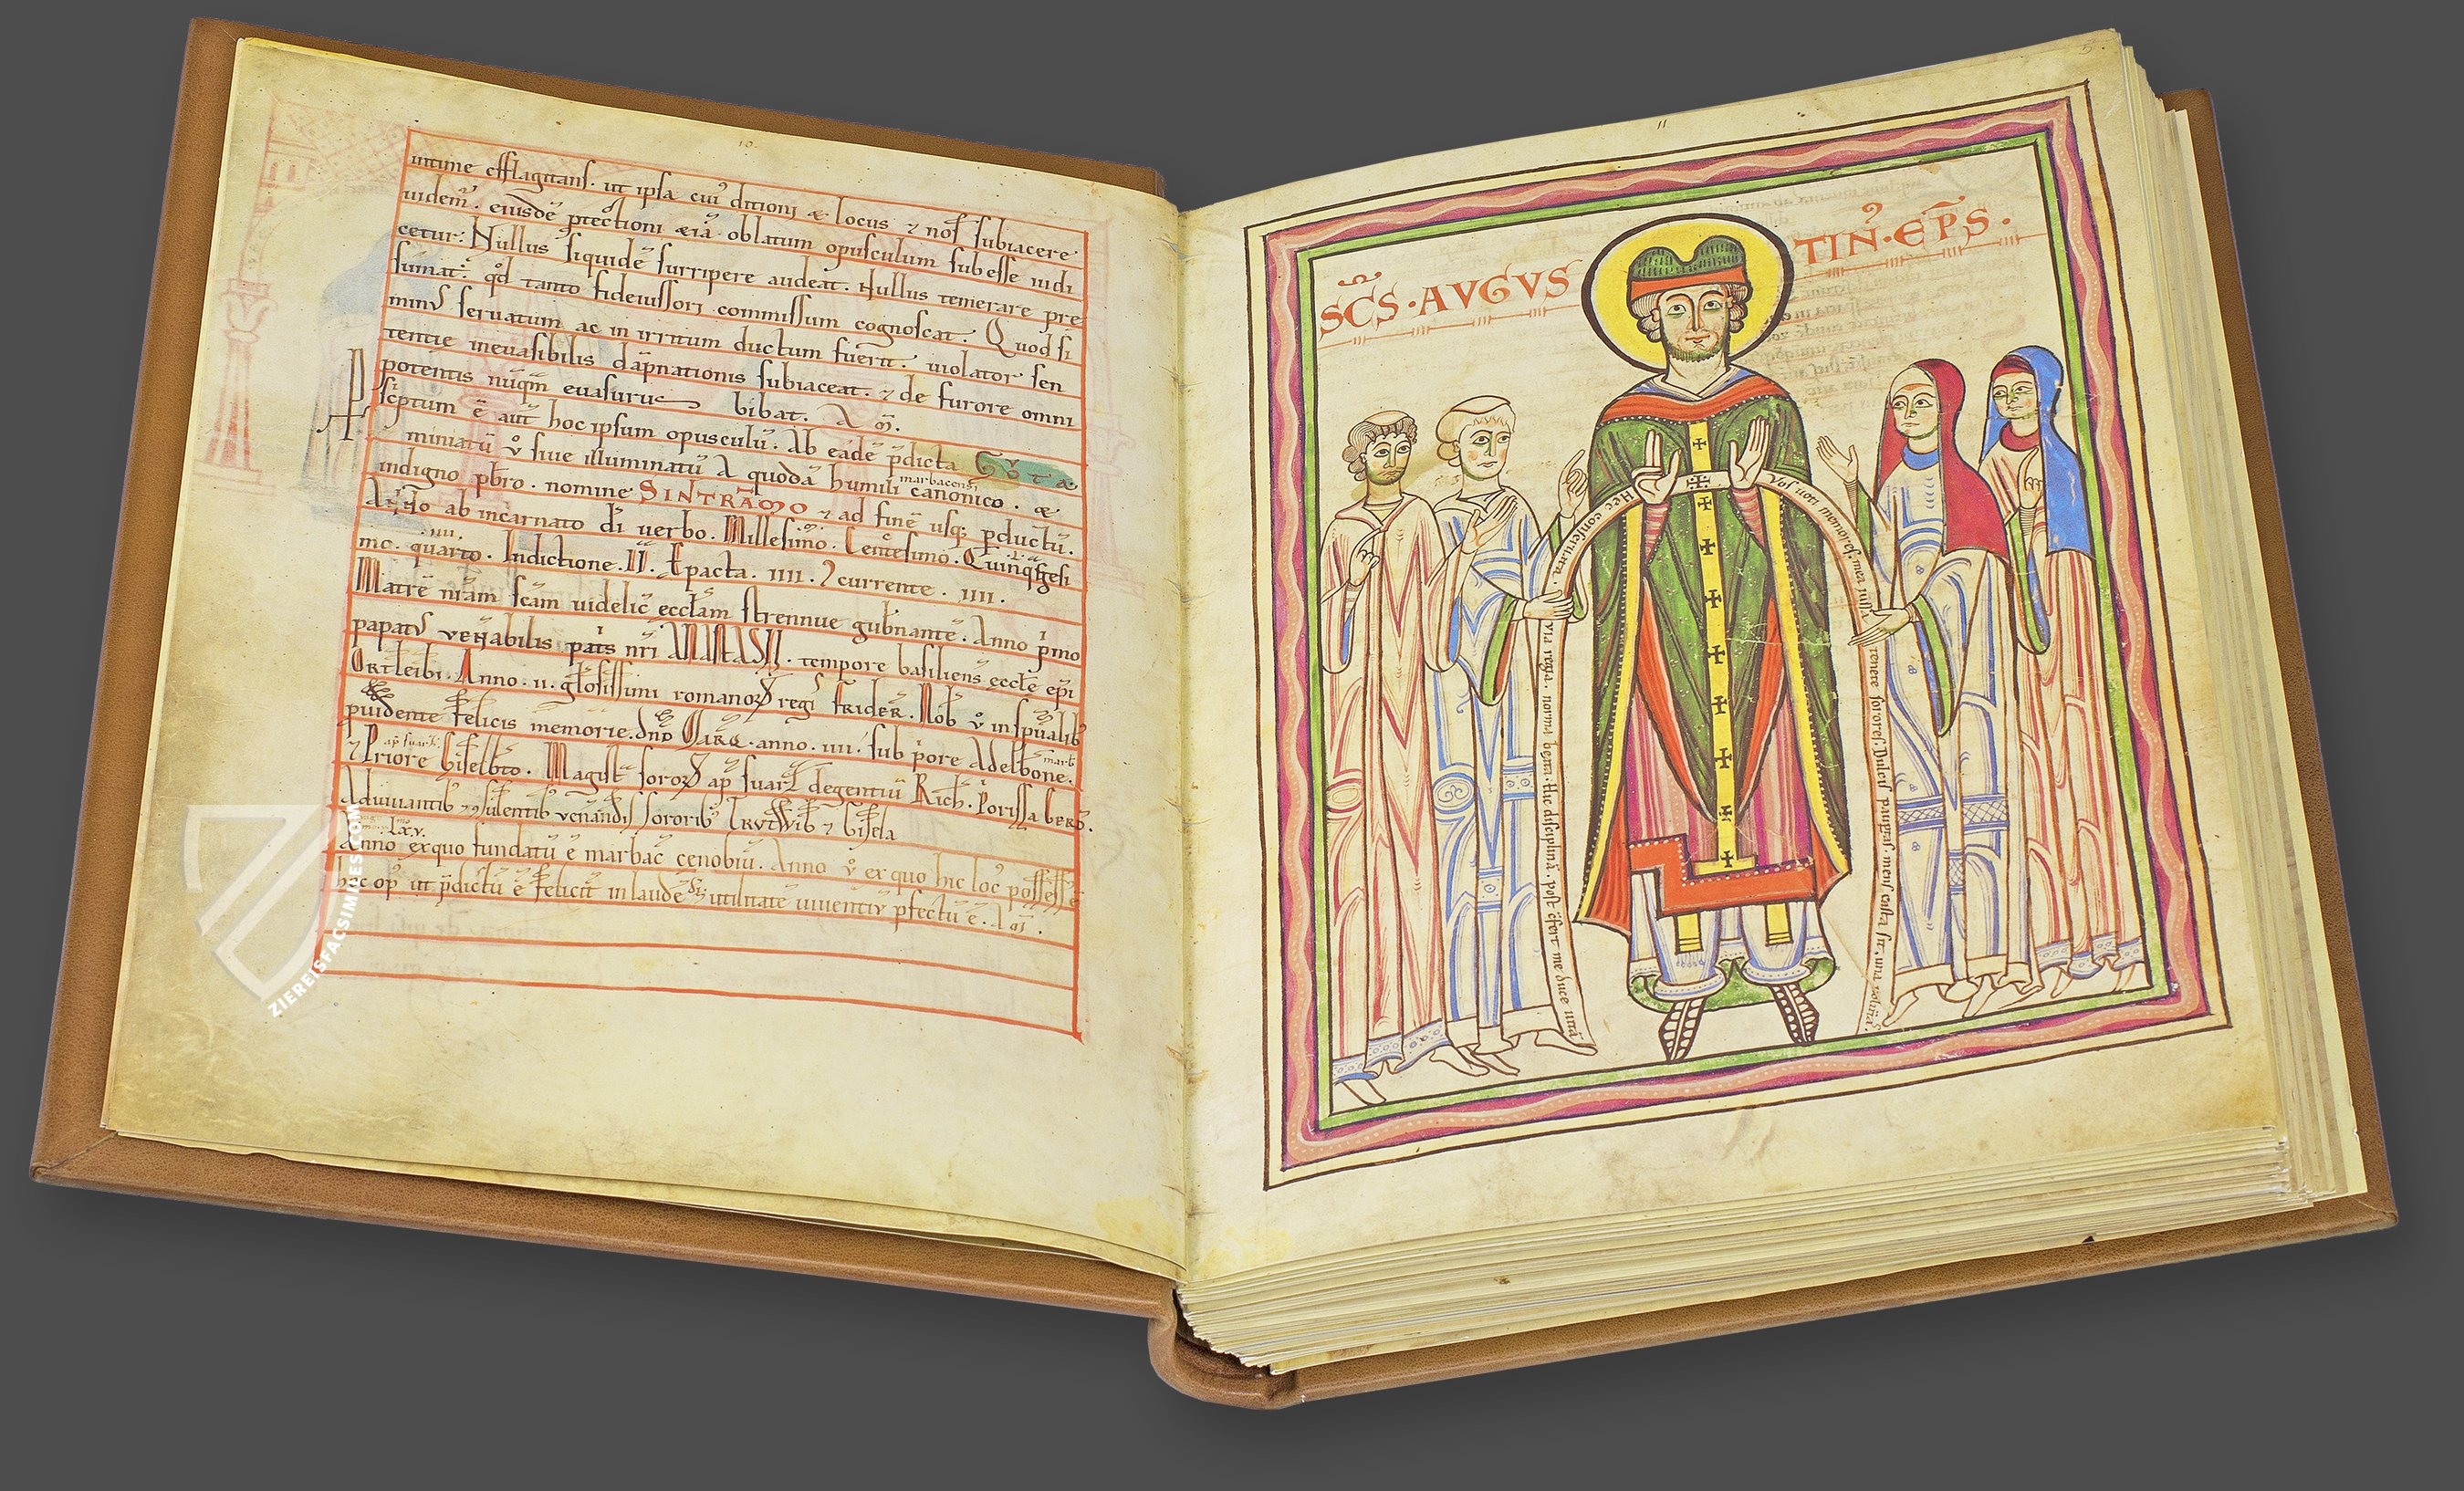 10
uitime efflagitans. ut ipsa cui᷒ ditioni & locus ⁊ nos subiacere
uidem᷒. eiusdē ꝓtectioni &iā oblatum opusculum subesse iudi
cetur. Nullus siquidē surripere audeat. Nullus temerare pre
sumat. qd tanto fideiussori commissum cognoscat. Quod si
min᷒ seruatum ac in irritum ductum fuerit. uiolator sen
tentię ineuasibilis dāpnationis subiaceat. & de furore omni
potentis nūqm euasurus bibat. AM̄.
scptum ē aut hoc ipsum opusculū. Ab eadē p̄dicta GUTA
miniatū ů siue illuminatū A quodā humili marbacensi canonico. &
indigno pb̄ro. nomine SINTRĀMO ⁊ ad finē usq; pductū.
Anno ab incarnato d̄i uerbo. Millesimo. Centesimo. Quinqgesi
mo. quarto. Indictione. II. Epacta. IIII. ⁊ currente. IIII.
Matrē nr̄am scam uidelic ecclam strennue gubnante. Anno pimo
papat᷒ venerabilis patis nr̄i ANASTASII. tempore basiliens ęccłe ep̄i
ORtleibi. Anno. II. glosissimi romanoꝝ regi᷒ FRIDER. Nob ů in spualib᷒
puidente felicis memorie. dnō MARQ. anno. IIII. sub p̄ore Adelbone. marb
⁊ Priore hiselbto. ap suarz. Magist sororꝝ ap suarz degentiū Rich. Porissa berō.
Adiuuantib᷒ ⁊ 9sulentib᷒ venandis sororib᷒ TRVTWIB ⁊ Gisela
Lxv.
Anno exquo fundatū ē marbac cenobiū. Anno ů ex quo hic loc᷒ possesse
hoc op᷒ ut p̄dictū ē felicit in laudē dī ⁊ utilitatē uiuentiū pfectū ē. AM̄.
ZIEREISFACSIMILES.COM
5
11
SC̄S·AVGVS TIN᷒·EP̄S·
Hec conseruata. Via regia. norma beata. Hic disciplinā. post ēfert me duce
Vos uoti memores mea iussa tenere sorores. Dulcis paupertas. mens casta sit. una uolūtas.